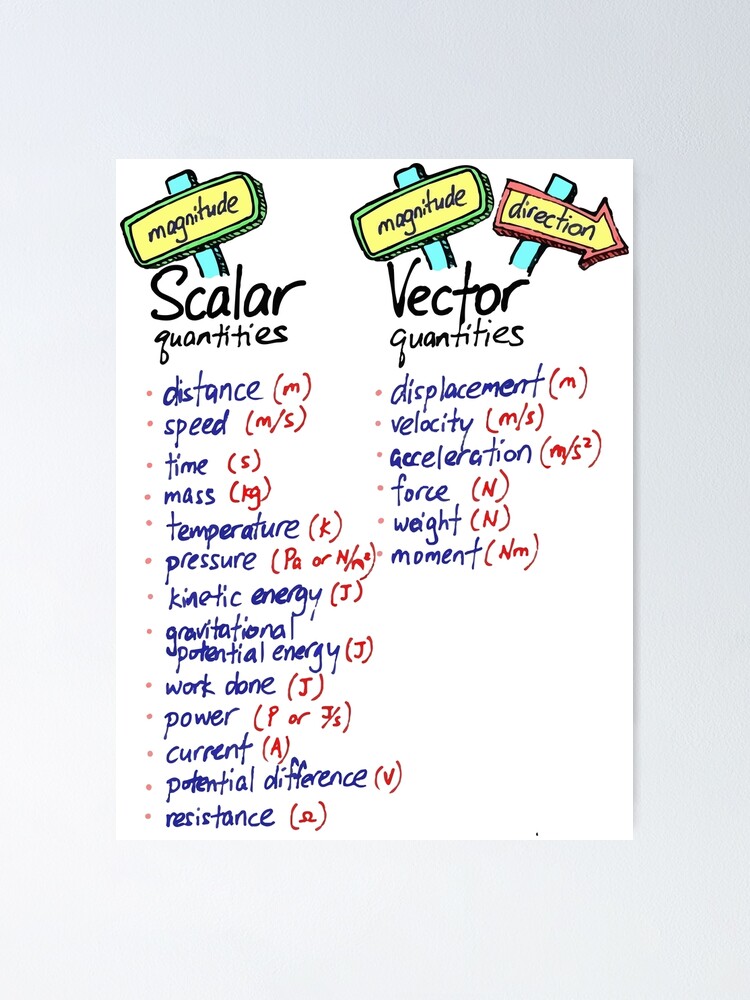 magnitude
Scalar
quantities
• distance (m)
• speed (m/s)
• time (s)
• mass (kg)
• temperature (K)
• pressure (Pa or N/m²)
• kinetic energy (J)
• gravitational
potential energy (J)
• work done (J)
• power (P or J/s)
• current (A)
• potential difference (V)
• resistance (Ω)
magnitude direction
Vector
quantities
• displacement (m)
• velocity (m/s)
• acceleration (m/s²)
• force (N)
• weight (N)
• moment (Nm)